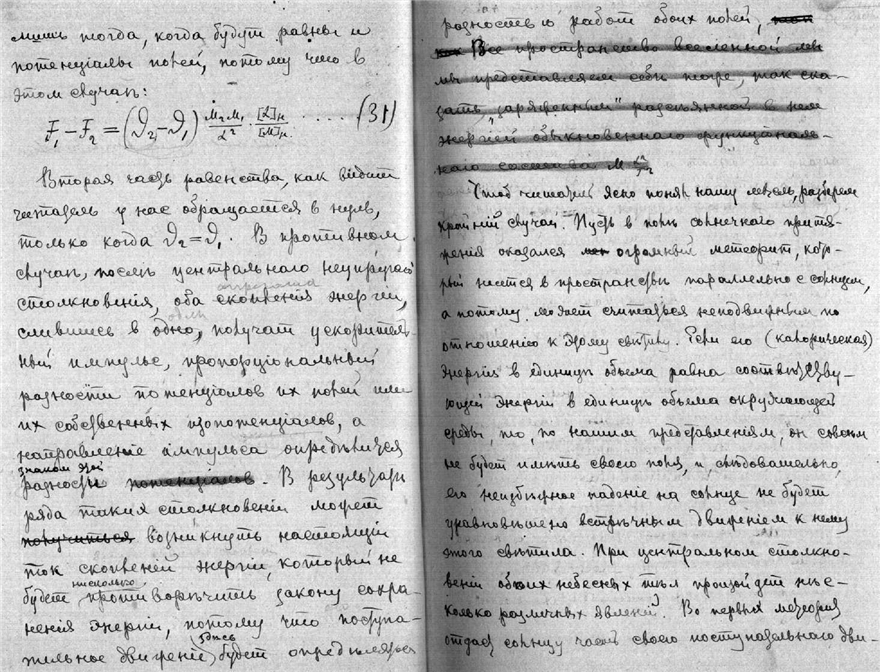 лишь тогда, когда будут равны и
потенціалы полей, потому что в
этом случаѣ:
F₁ − F₂ = (ϑ₂ − ϑ₁) M₂M₁/α² · [α]н/[M]н ..... (31)
Вторая часть равенства, как видит
читатель у нас обращается в нуль,
только когда ϑ₂ = ϑ₁. В противном
случаѣ, послѣ центральнаго неупругаго
столкновенія, оба скопленія энергіи,
слившись в одно, получат ускоритель-
ный импульс, пропорціональный
разности потенціалов их полей или
их собственных изопотенціалов, а
направленіе импульса опредѣлится
знаком этой
разности потенціалов. В результатѣ
ряда таких столкновеній может
получиться возникнуть настоящій
ток скопленій энергіи, который не
нисколько
будет противорѣчить закону сохра-
ненія энергіи, потому что поступа-
здесь
тельное движеніе будет опредѣляться
разностью работ обоих полей,
Все пространство вселенной мы
мы представляем себѣ тоже, так ска-
зать „заряженным" разсѣянной в нем
энергіей обыкновеннаго функціональ-
наго M
Чтоб читатель ясно понял нашу мысль, разберем
крайній случай. Пусть в поле солнечнаго притя-
женія оказался огромный метеорит, кото-
рый несется в пространствѣ параллельно с солнцем,
а потому может считаться неподвижным по
отношенію к этому свѣтилу. Если его (калорическая)
энергія в единицѣ объема равна соотвѣтству-
ющей энергіи в единицѣ объема окружающей
среды то, по нашим представленіям, он совсѣм
не будет имѣть своего поля, и, слѣдовательно,
его неизбѣжное паденіе на солнце не будет
уравновѣшено встрѣчным движеніем к нему
этого свѣтила. При центральном столкно-
веніи обоих небесных тѣл произойдет нѣс-
колько различных явленій. Во первых метеорит
отдаст солнцу часть своего поступательнаго дви-